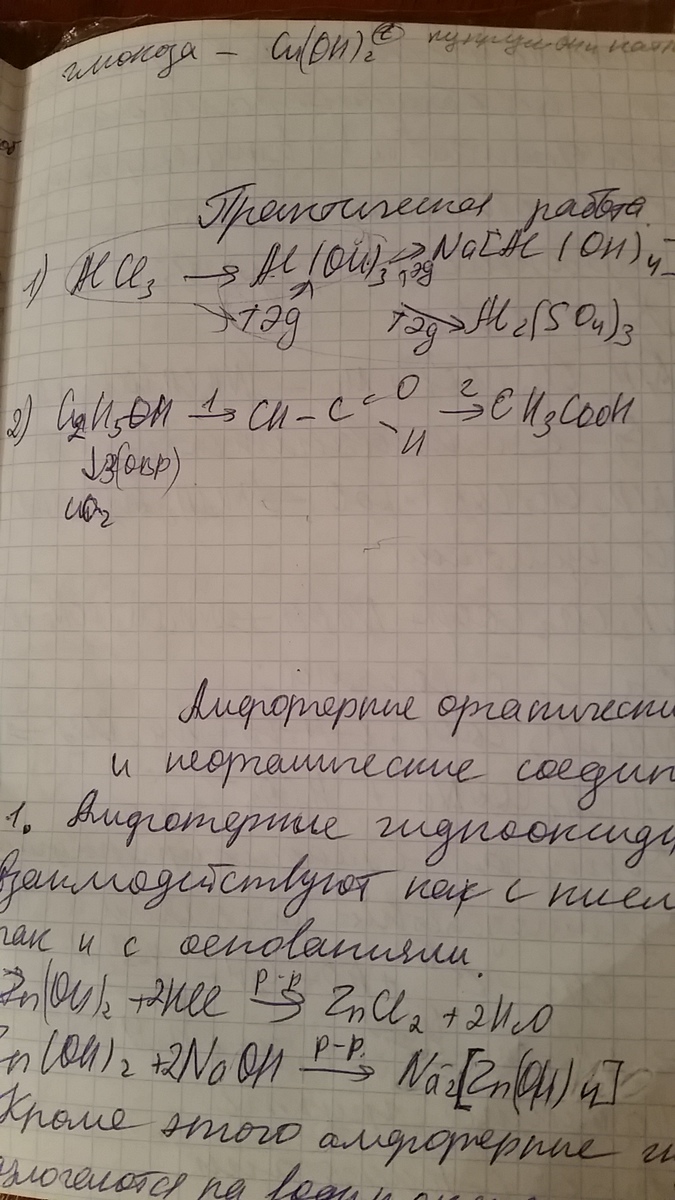 глюкоза – Cu(OH)₂ (t)
Практическая работа.
1) AlCl₃ → Al(OH)₃ → Na[Al(OH)₄]
+2д +2д +2д Al₂(SO₄)₃
2) C₂H₅OH 1→ CH – C = O 2→ CH₃COOH
H
↓3(ОВР)
CO₂
Амфотерные органически
и неорганические соедин
1. Амфотерные гидрооксиды
взаимодействуют как с кисл
так и с основаниями.
Zn(OH)₂ + 2HCl р-р→ ZnCl₂ + 2H₂O
Zn(OH)₂ + 2NaOH р-р→ Na₂[Zn(OH)₄]
Кроме этого амфотерные ги
разлогаются на воду и